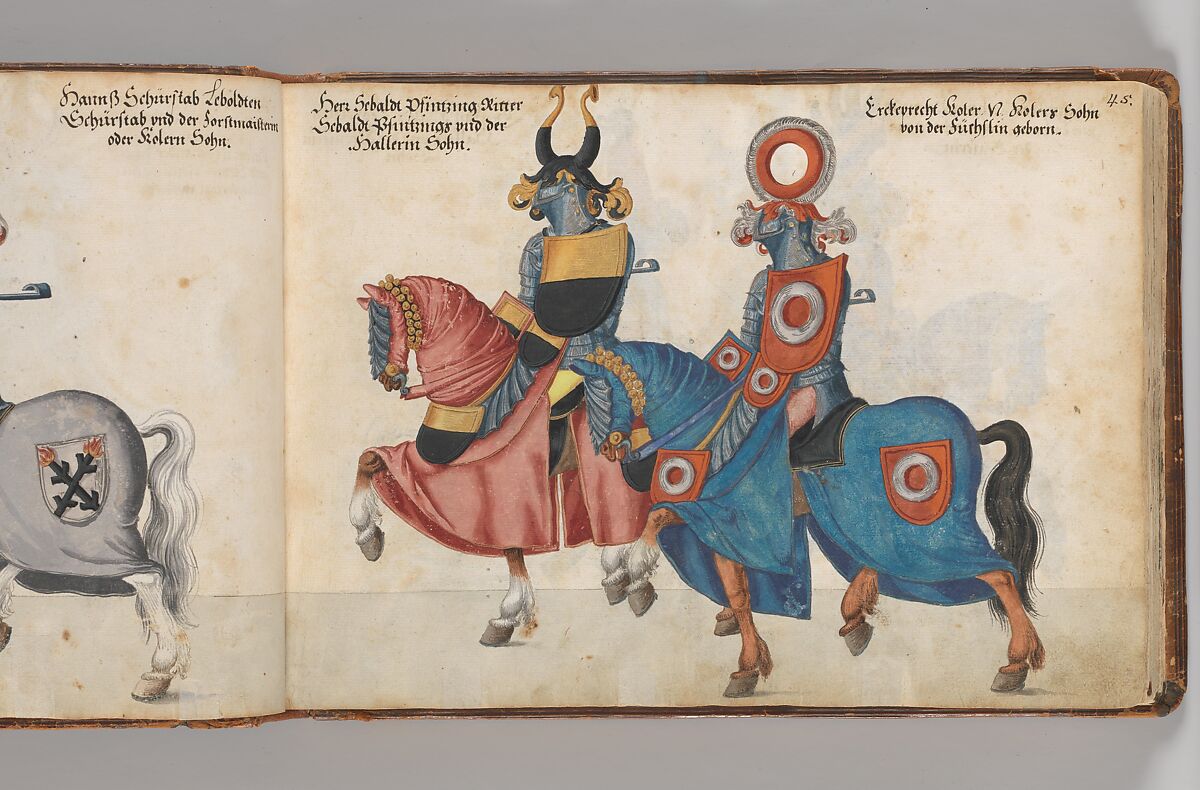 Hannß Schürstab Leboldten
Schürstab vnd der Forstmaisterin
oder Kolern Sohn.
Herr Sebaldt Pfintzing Ritter
Sebaldt Pfintzings vnd der
Hallerin Sohn.
45.
Erckeprecht Koler N. Kolers Sohn
von der Füchslin geborn.